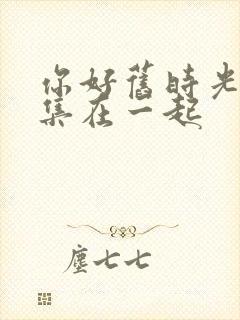 你好舊時光
集在一起
塵七七